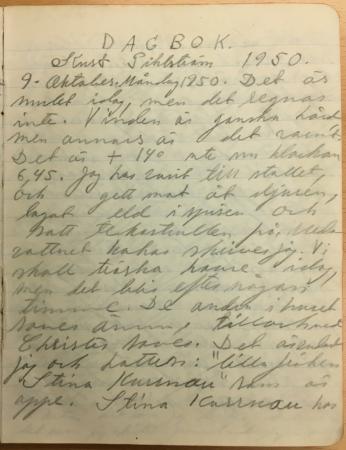 DAGBOK.
Kurt Pihlström 1950.
9. Oktober. Måndag 1950. Det är
mulet idag, men det regnar
inte. Vinden är ganska hård
men annars är det varmt.
Det är + 14° ute nu klockan
6,45. Jag har varit till stallet,
och gett mat åt djuren,
lagat eld i spisen och
satt på,
vattnet kokas skriver jag. Vi
skall tröska havre idag,
men det blir efter någon
timme. De andra i huset
soves ännu,
Christer soves. Det är endast
jag och katten: "lilla fröken
Stina Kurrnau" som är
uppe. Stina Kurrnau har